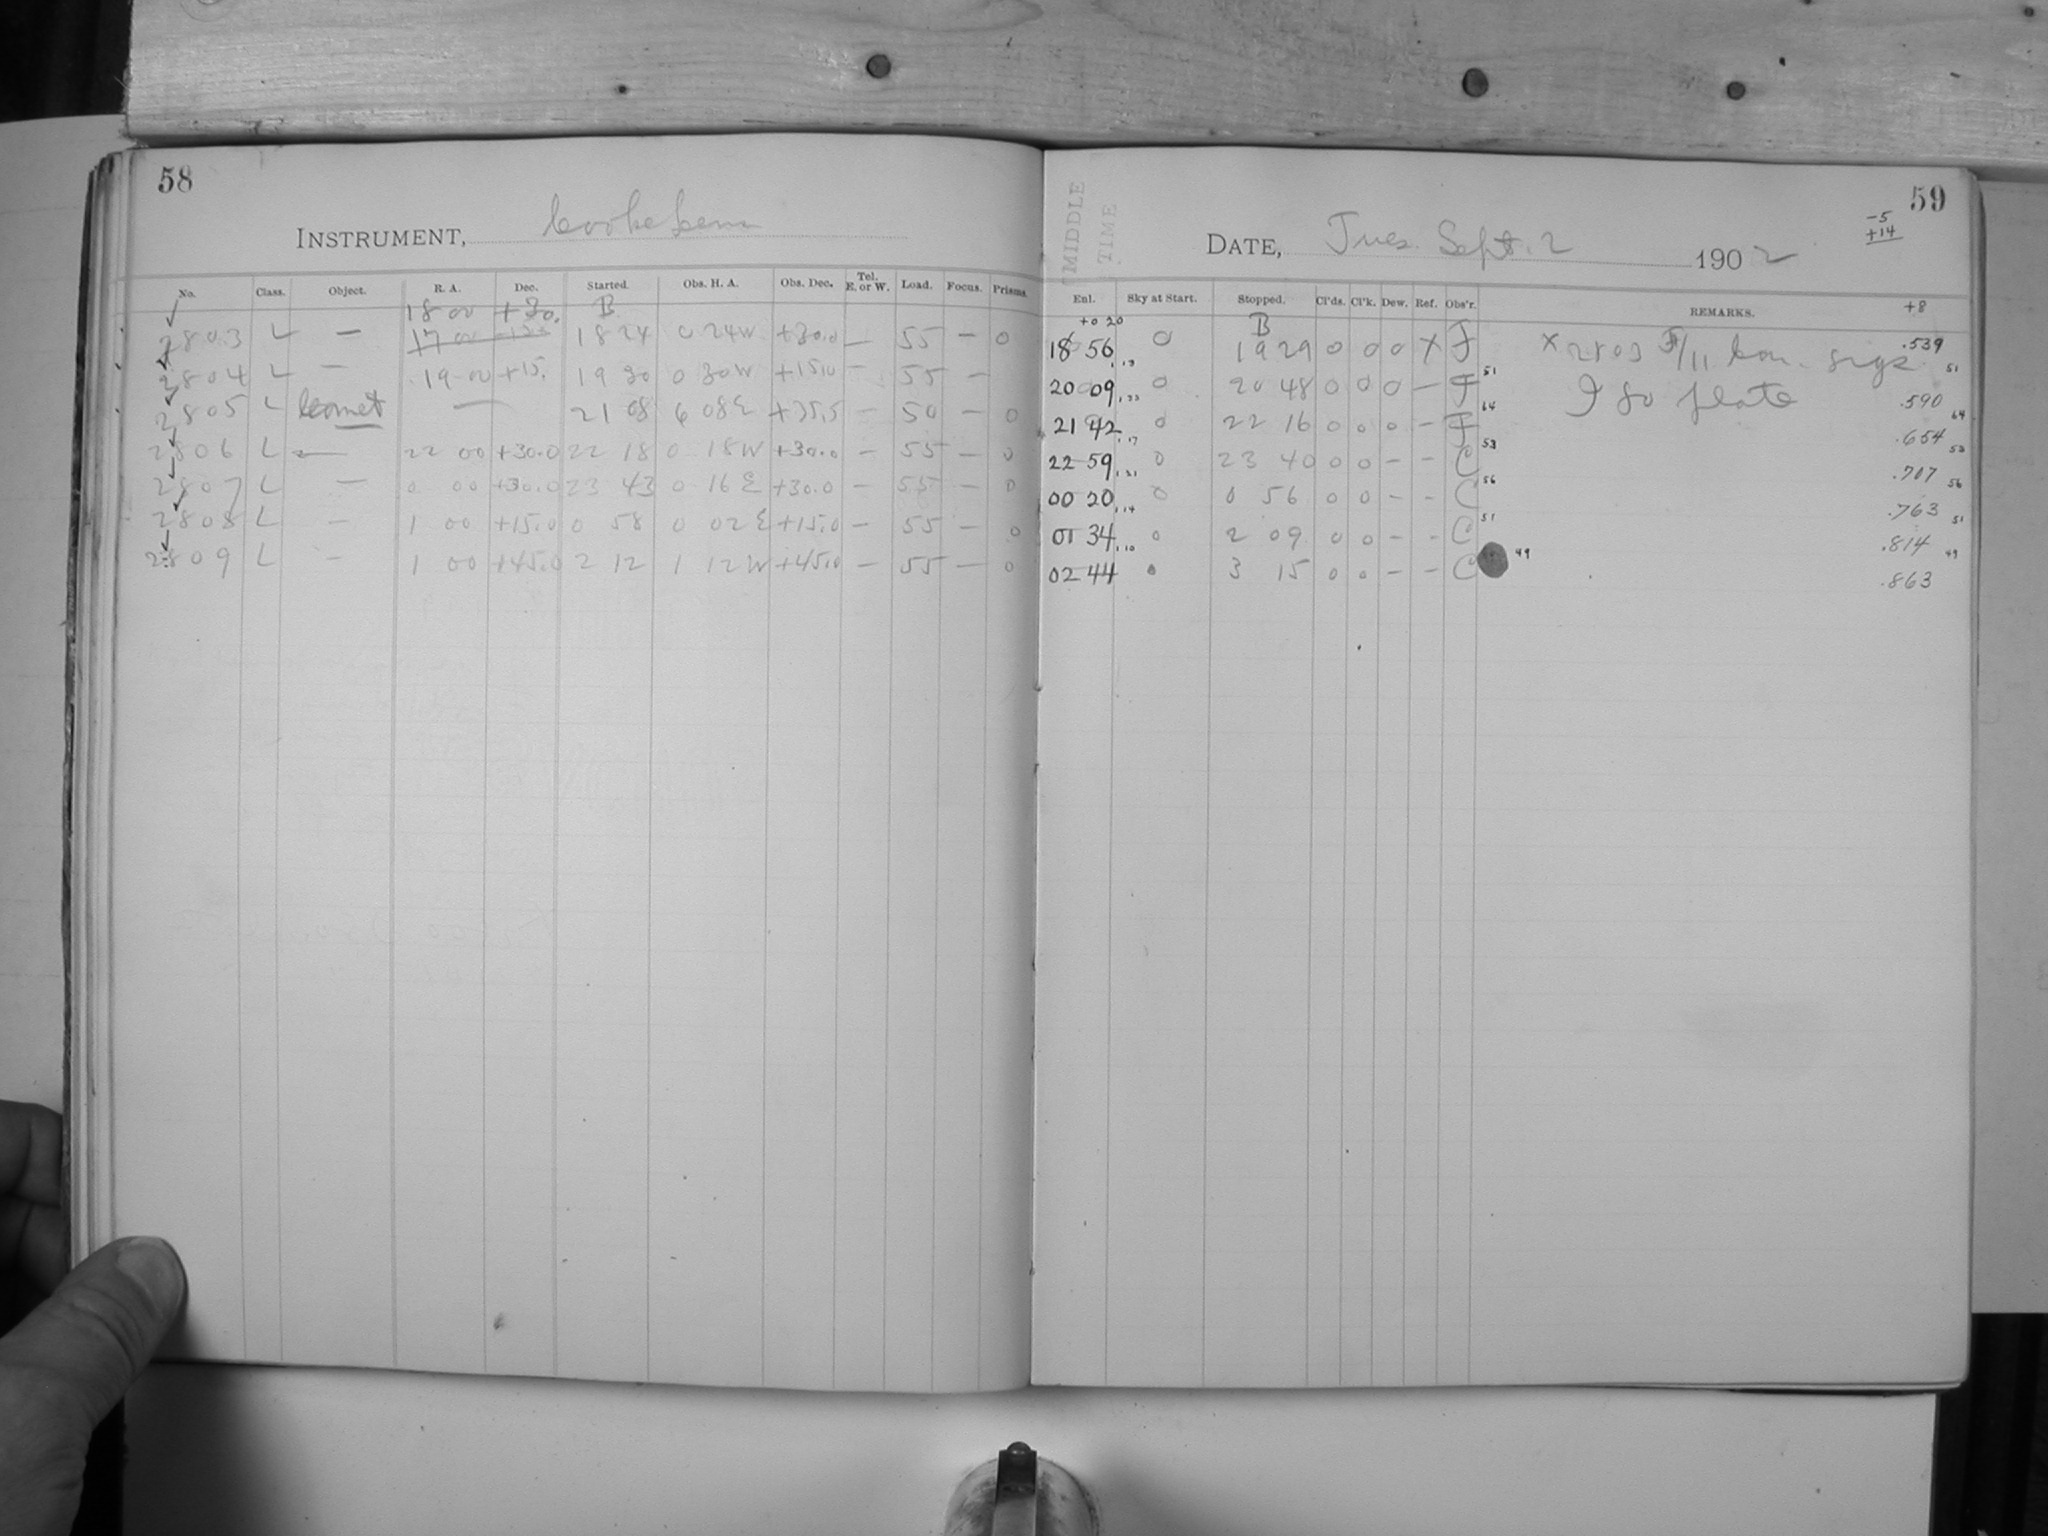 58
INSTRUMENT, Cooke Lens
No. Class. Object. R. A. Dec. Started. Obs. H. A. Obs. Dec. Tel. E. or W. Load. Focus. Prisms.
18 00 +30. B
2803 L — 17 00 18 24 0 24W +30.0 — 55 — 0
2804 L — 19 00 +15. 19 30 0 30W +15.0 — 55 —
2805 L Comet — 21 08 6 08E +35.5 — 50 — 0
2806 L — 22 00 +30.0 22 18 0 18W +30.0 — 55 — 0
2807 L — 0 00 +30.0 23 43 0 16E +30.0 — 55 — 0
2808 L — 1 00 +15.0 0 58 0 02E +15.0 — 55 — 0
2809 L — 1 00 +45.0 2 12 1 12W +45.0 — 55 — 0
59
MIDDLE TIME
DATE, Tues. Sept. 2 1902
-5
+14
Enl. Sky at Start. Stopped. Cl'ds. Cl'k. Dew. Ref. Obs'r. REMARKS. +8
+0 20 B
18 56 0 19 29 0 0 0 X F X 2803 .539
51 51
20 09 0 20 48 0 0 0 — F I 80 plate .590
64 64
21 42 0 22 16 0 0 0 — F .654
53 53
22 59 0 23 40 0 0 — — C .707
56 56
00 20 0 0 56 0 0 — — C .763
51 51
01 34 0 2 09 0 0 — — C .814
49 49
02 44 0 3 15 0 0 — — C .863